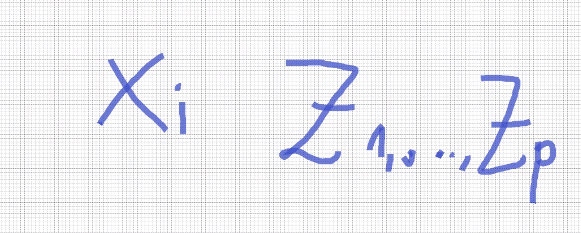 Xi Z1, ..., Zp